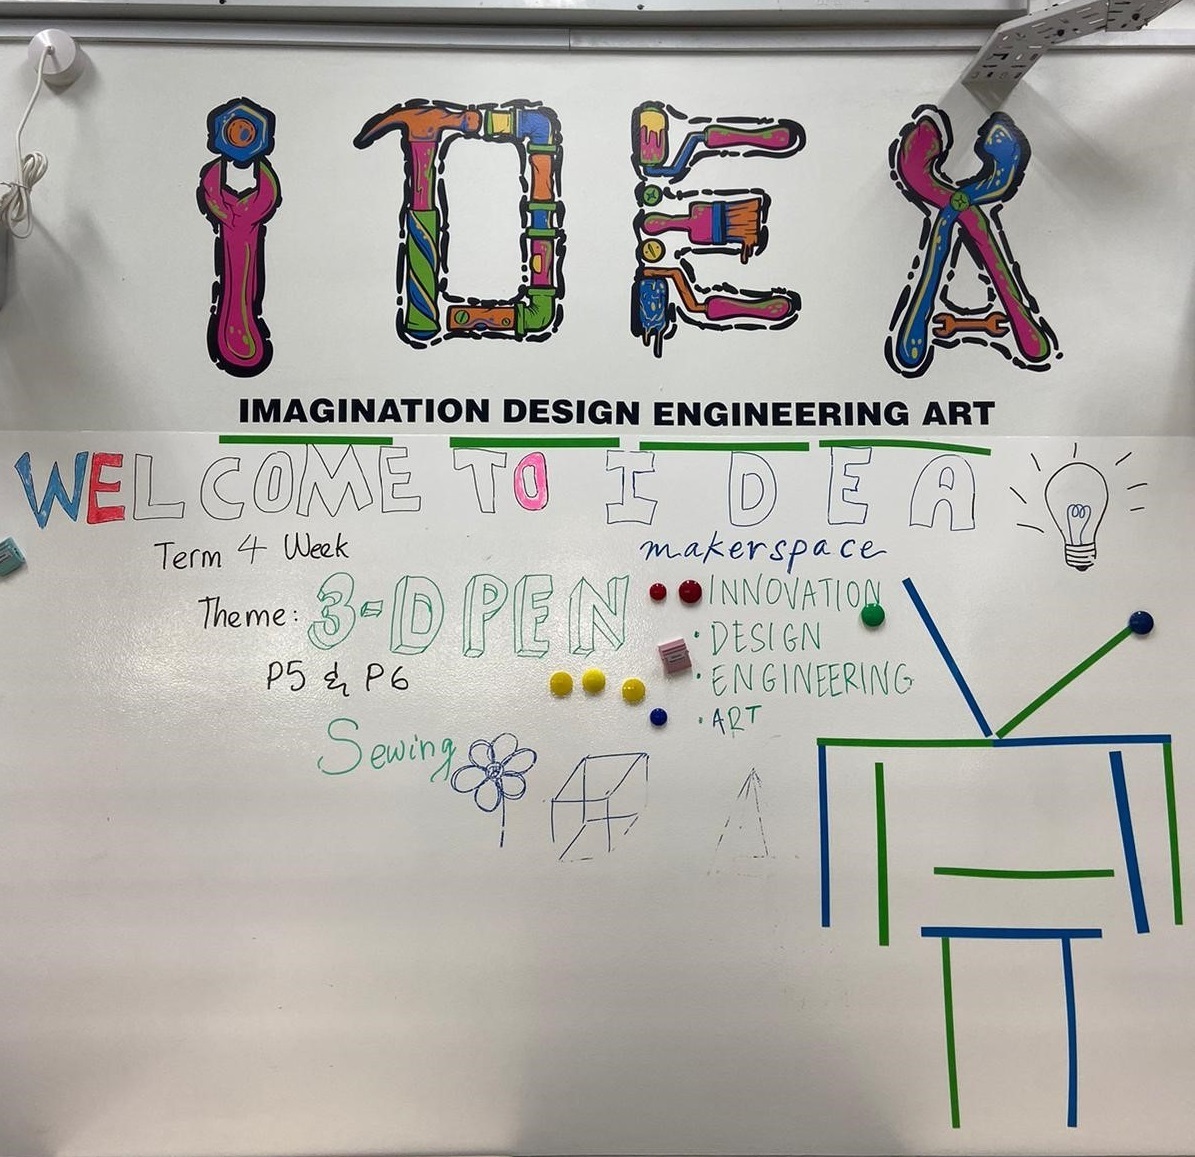 IDEA
IMAGINATION DESIGN ENGINEERING ART
WELCOME TO IDEA
Term 4 Week
makerspace
Theme: 3-D PEN
P5 & P6
Sewing
INNOVATION
• DESIGN
• ENGINEERING
• ART